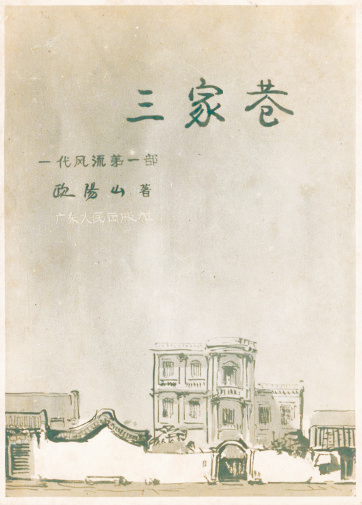 三家巷
一代风流第一部
欧陽山 著
广东人民出版社